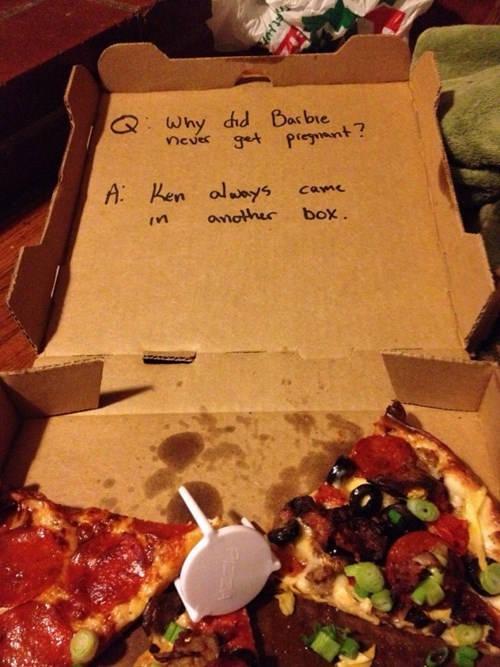 Q: Why did Barbie
never get pregnant?
A: Ken always came
in another box.
PIZZA